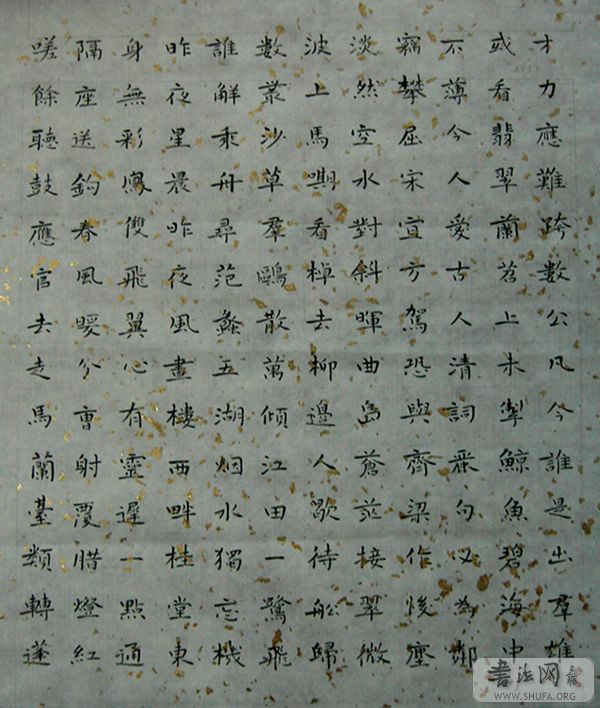 才力應難跨數公凡今誰是出羣雄
或看翡翠蘭苕上未掣鯨魚碧海中
不薄今人愛古人清詞麗句必為鄰
竊攀屈宋宜方駕恐與齊梁作後塵
淡然空水對斜暉曲島蒼茫接翠微
波上馬嘶看棹去柳邊人歇待船歸
數叢沙草羣鷗散萬傾江田一鷺飛
誰解乘舟尋范蠡五湖烟水獨忘機
昨夜星晨昨夜風畫樓西畔桂堂東
身無彩鳳雙飛翼心有靈遲一點通
隔座送鈎春風暖分曹射覆腊燈紅
嗟餘聽鼓應官去走馬蘭臺類轉蓬
书法网
WWW.SHUFA.ORG